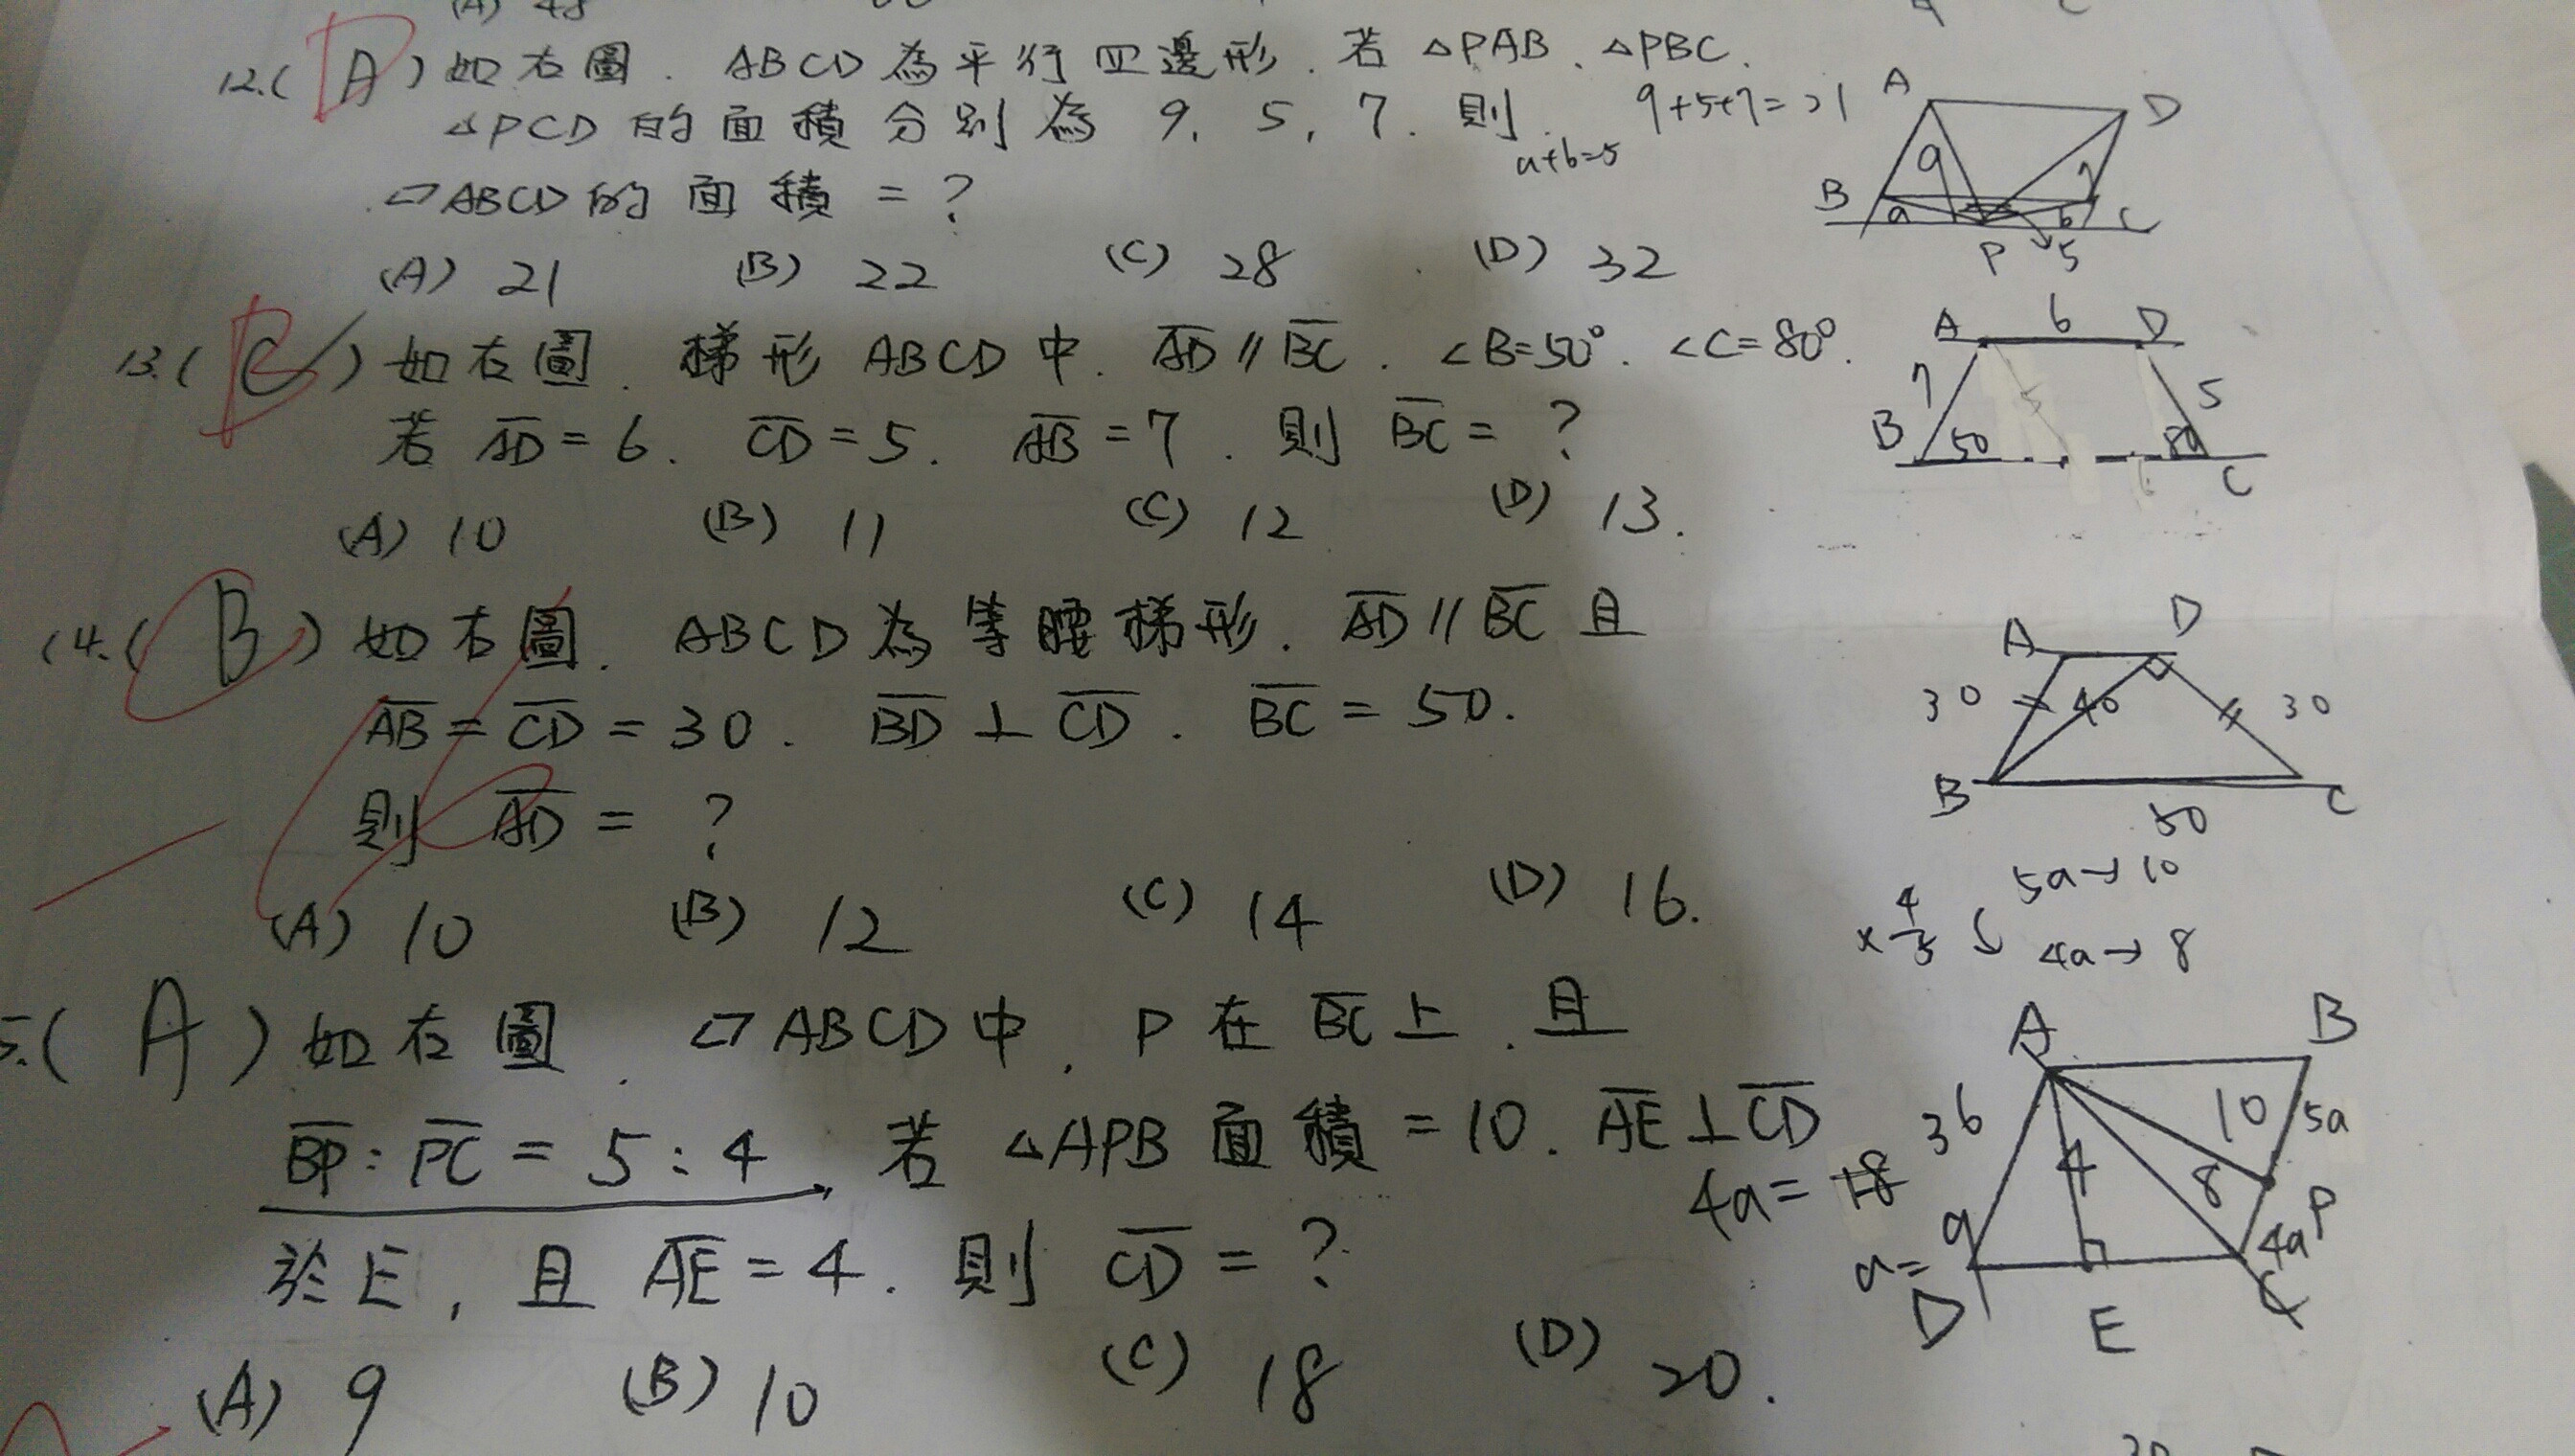 (A) 48
12.( A ) 如右圖. ABCD為平行四邊形. 若 △PAB、△PBC、
△PCD的面積分別為 9, 5, 7. 則
▱ABCD的面積 = ?
(A) 21 (B) 22 (C) 28 (D) 32
9+5+7=21
a+b=5
A D
9 7
B a b C
P 5
13.( C ) 如右圖. 梯形 ABCD 中. AD // BC. ∠B=50°. ∠C=80°.
若 AD = 6. CD = 5. AB = 7. 則 BC = ?
(A) 10 (B) 11 (C) 12 (D) 13.
A 6 D
7 5
B 50 80 C
14.( B ) 如右圖. ABCD為等腰梯形. AD // BC 且
AB = CD = 30. BD ⊥ CD. BC = 50.
則 AD = ?
(A) 10 (B) 12 (C) 14 (D) 16.
A D
30 40 30
B C
50
5a→10
×4/5
4a→8
5.( A ) 如右圖. ▱ABCD中. P在BC上. 且
BP : PC = 5 : 4, 若 △APB 面積 = 10. AE⊥CD
於E, 且 AE = 4. 則 CD = ?
(A) 9 (B) 10 (C) 18 (D) 20.
4a = 18 36
a=
A B
10 5a
4 8 P
9 4a
D E C